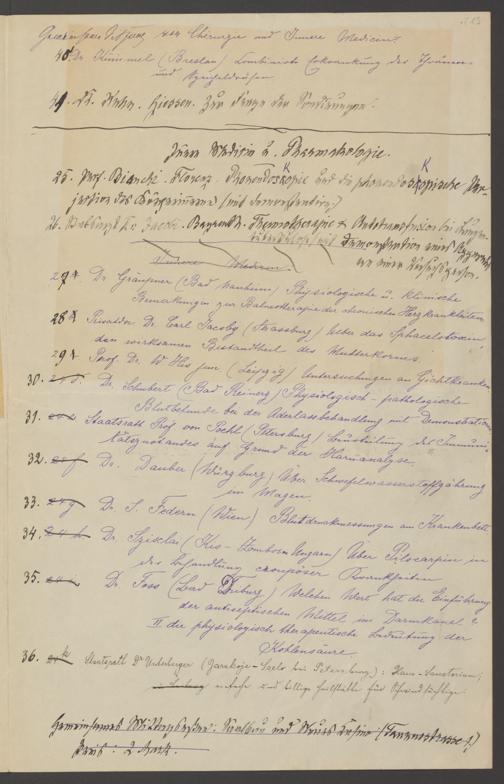 Chirurgie und Innere Medicin.
48 Dr. Kümmel (Breslau) Combinirte Erkrankung der Thränen-
und Speicheldrüsen
49. Dr. Kuhn. Giessen. Zur Frage der
Innere Medicin u. Pharmakologie.
25. Prof. Bianchi. Florenz. Phonendoskopie und die phonendoskopische
(mit Demonstration)
26. Dr. Bayreuth. Thermotherapie & Autotransfusion bei
mit Demonstration eines
an einer
Innere Medicin.
27 Dr. Gräupner (Bad Nauheim) Physiologische u. klinische
Bemerkungen zur Balneotherapie der chronischen Herzkrankheiten
28 Privatdoz. Dr. Carl Jacobj (Strassburg) Ueber das Sphacelotoxin,
den wirksamen Bestandtheil des Mutterkornes
29 Prof. Dr. W. His jun (Leipzig) Untersuchungen an Gichtkranken
30. Dr. Schubert (Bad Reinerz) Physiologisch-pathologische
Blutbefunde bei der Aderlassbehandlung mit Demonstration
31. Staatsrath Prof von Poehl (Petersburg) Beurtheilung des Immuni-
tätszustandes auf Grund der Harnanalyse.
32. Dr. Dauber (Würzburg) Über Schwefelwasserstoffgährung
im Magen.
33. Dr. S. Federn (Wien) Blutdruckmessungen am Krankenbett
34. Dr. Sziklai (Kis-Zombor Ungarn) Über Pilocarpin in
der Behandlung croupöser Krankheiten
35. Dr. Foss (Bad Driburg) Welchen Wert hat die Einführung
der antiseptischen Mittel im Darmkanal?
II die physiologisch therapeutische Bedeutung der
Kohlensäure
36. Staatsrath Dr Unterberger (Zarskoje-Sselo bei Petersburg): Haus-Sanatorium,
einfache und billige Heilstätte für Schwindsüchtige.
Gemeinsames Mittagessen: und
Preis: 2 Mark.